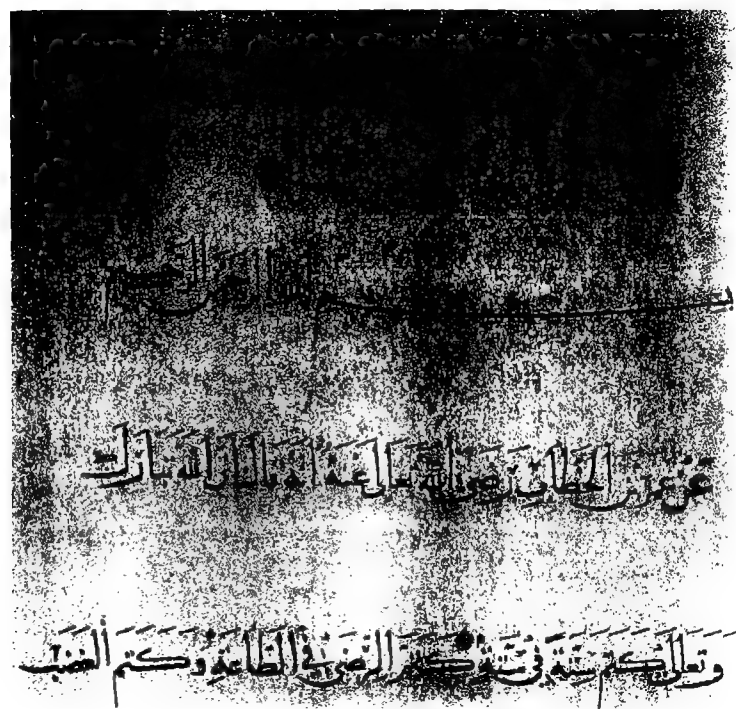 بسم الله الرحمن الرحيم
عَنْ عُمَرَ بْنِ الْخَطَّابِ رَضِيَ اللَّهُ تَعَالَى عَنْهُ أَنَّهُ قَالَ إِنَّ اللَّهَ تَبَارَكَ
وَتَعَالَى كَتَمَ سِتَّةً فِي سِتَّةٍ كَتَمَ الرِّضَى فِي الطَّاعَةِ وَكَتَمَ الْغَضَبَ